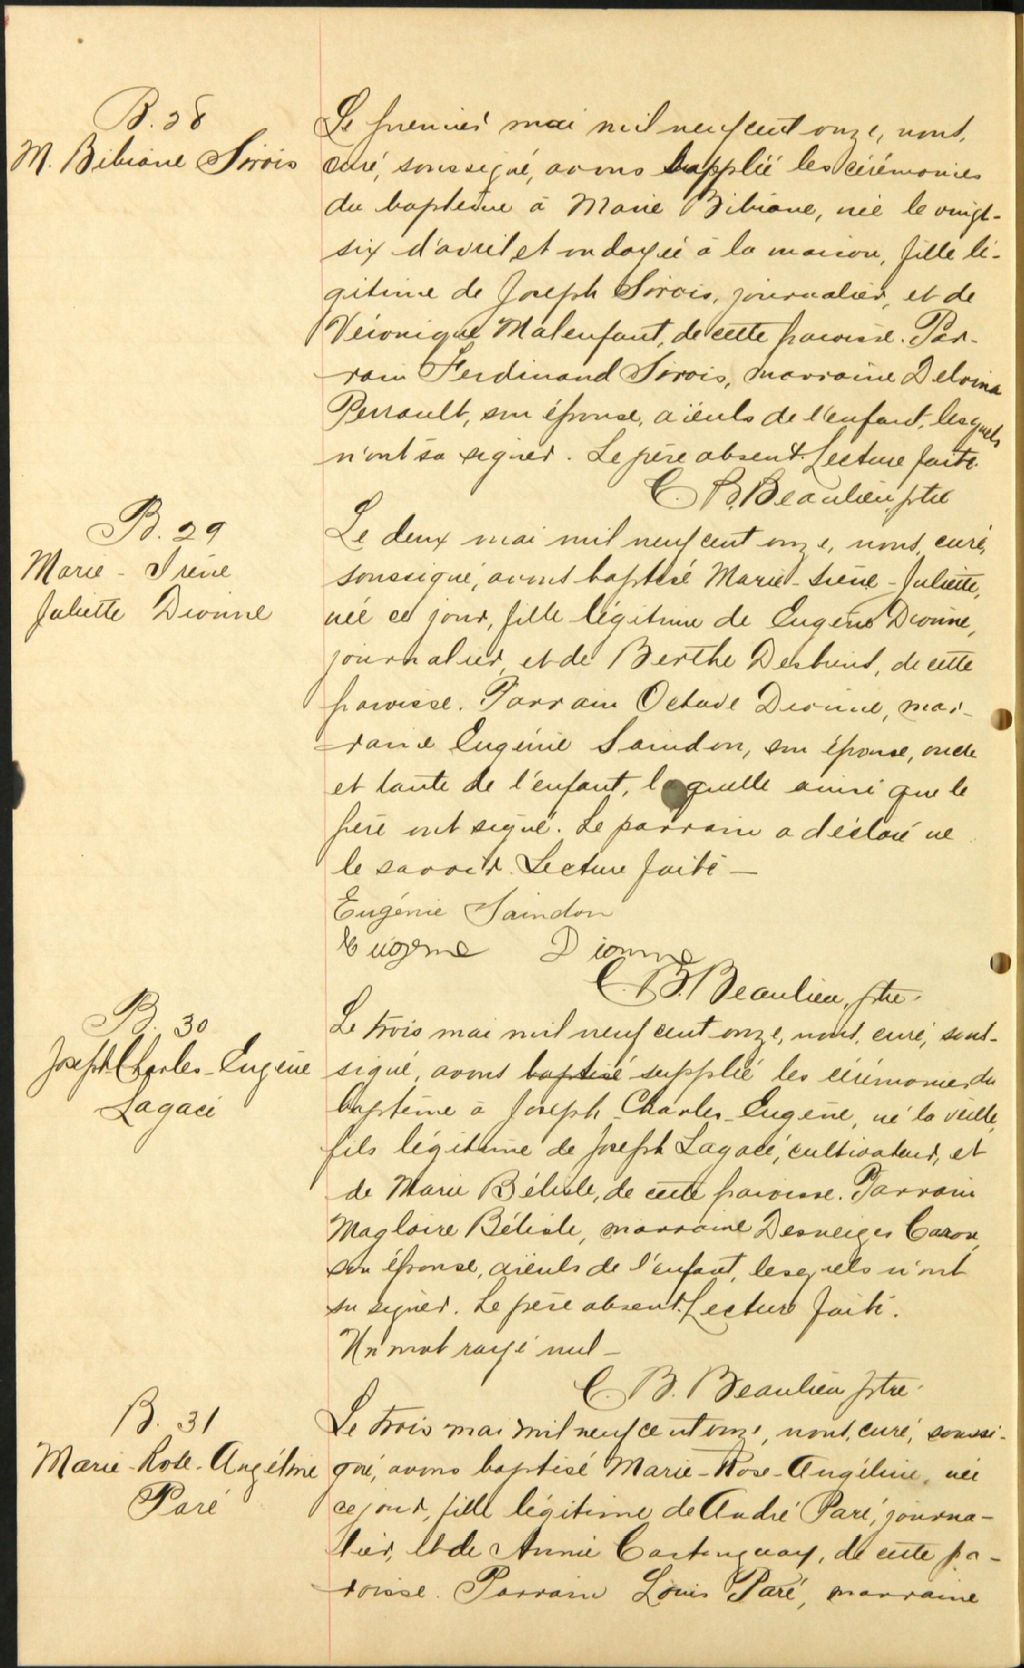 B. 28
M. Bibiane Sirois
Le premier mai mil neuf cent onze, nous,
curé, soussigné, avons supplié les cérémonies
du baptême à Marie Bibiane, née le vingt-
six d'avril et ondoyée à la maison, fille lé-
gitime de Joseph Sirois, journalier, et de
Véronique Malenfant, de cette paroisse. Par-
rain Ferdinand Sirois, marraine Delvina
Perrault, son épouse, aïeuls de l'enfant, lesquels
n'ont su signer. Le père absent. Lecture faite.
C. B. Beaulieu, ptre
B. 29
Marie - Irène
Juliette Dionne
Le deux mai mil neuf cent onze, nous, curé,
soussigné, avons baptisé Marie-Irène-Juliette,
née ce jour, fille légitime de Eugène Dionne,
journalier, et de Berthe, de cette
paroisse. Parrain Octave Dionne, mar-
raine Eugénie Saindon, son épouse, oncle
et tante de l'enfant, laquelle ainsi que le
père ont signé. Le parrain a déclaré ne
le savoir. Lecture faite —
Eugénie Saindon
Eugene Dionne
C. B. Beaulieu, ptre.
B. 30
Joseph Charles-Eugène
Lagacé
Le trois mai mil neuf cent onze, nous, curé, sous-
signé, avons baptisé supplié les cérémonies du
baptême à Joseph-Charles-Eugène, né la veille,
fils légitime de Joseph Lagacé, cultivateur, et
de Marie Bélisle, de cette paroisse. Parrain
Magloire Bélisle, marraine Desneiges Caron,
son épouse, aïeuls de l'enfant, lesquels n'ont
su signer. Le père absent. Lecture faite.
Un mot rayé nul —
C. B. Beaulieu ptre.
B. 31
Marie-Rose-Angéline
Paré
Le trois mai mil neuf cent onze, nous, curé, soussi-
gné, avons baptisé Marie-Rose-Angéline, née
ce jour, fille légitime de André Paré, journa-
lier, et de Annie Castonguay, de cette pa-
roisse. Parrain Louis Paré, marraine